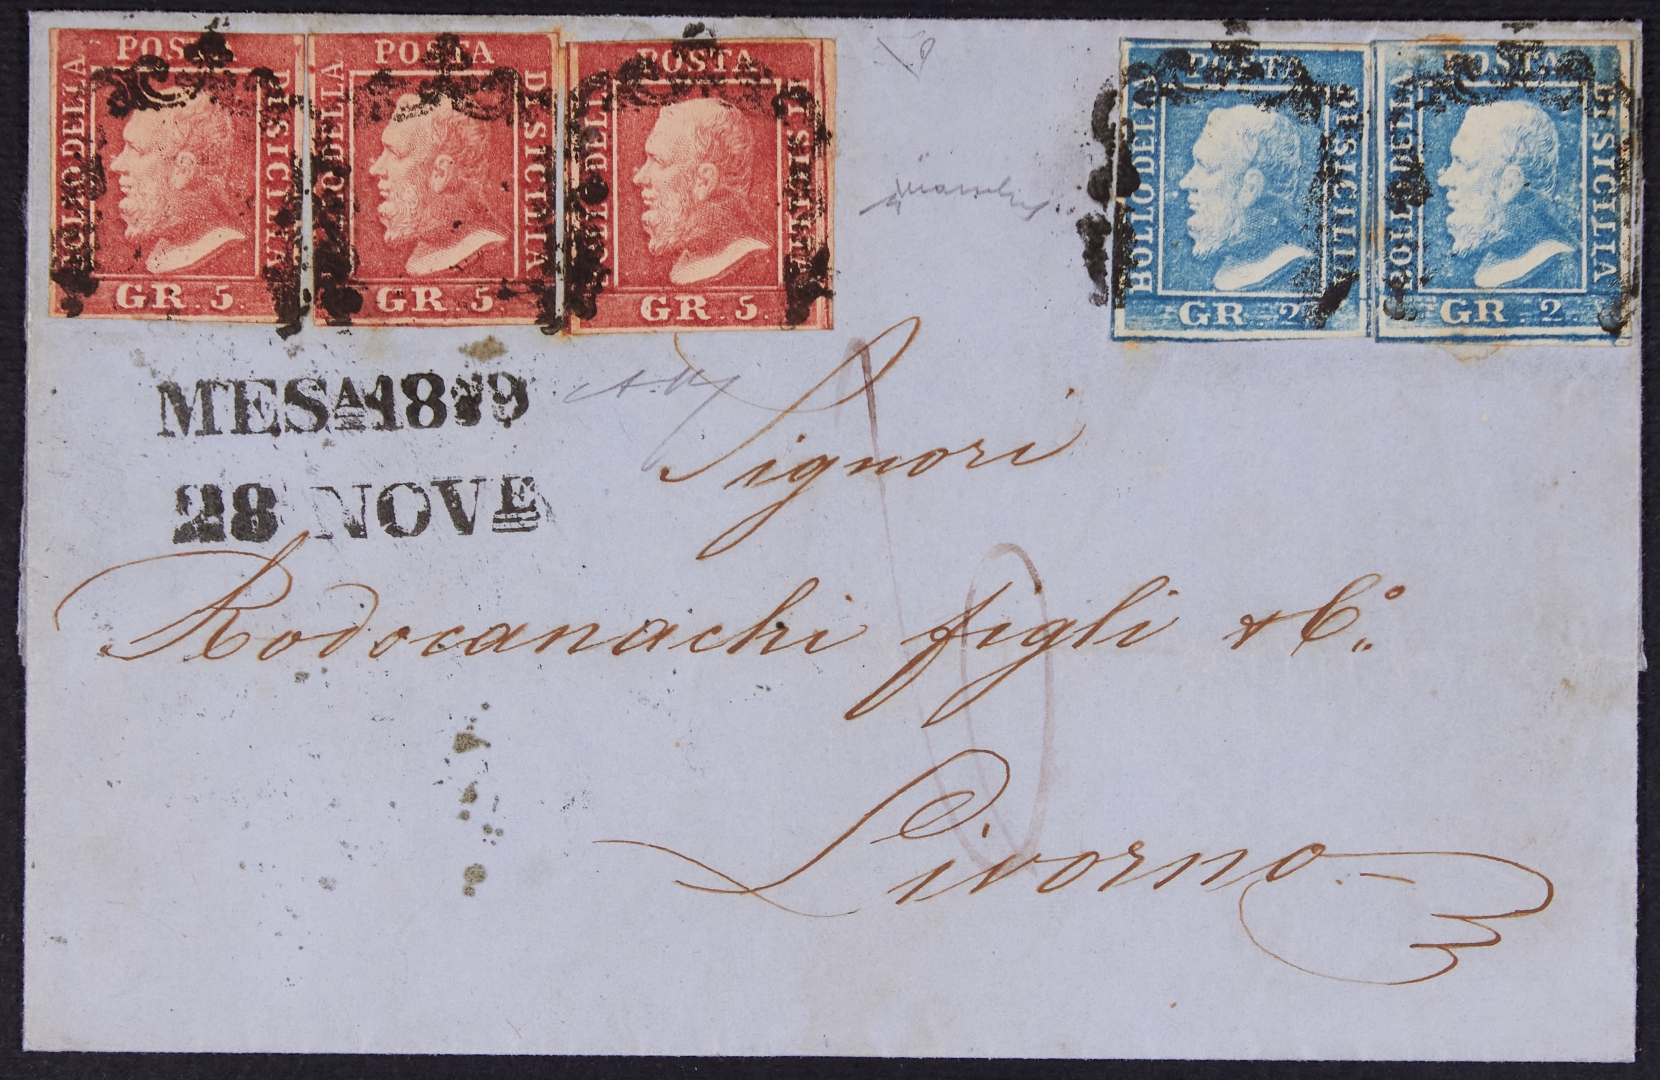 POSTA
BOLLO DELLA
DI SICILIA
GR. 5.
POSTA
BOLLO DELLA
DI SICILIA
GR. 5.
POSTA
BOLLO DELLA
DI SICILIA
GR. 5.
POSTA
BOLLO DELLA
DI SICILIA
GR. 2.
POSTA
BOLLO DELLA
DI SICILIA
GR. 2.
MESA
28 NOVE
Signori
Rodocanachi figli & Co.
Livorno